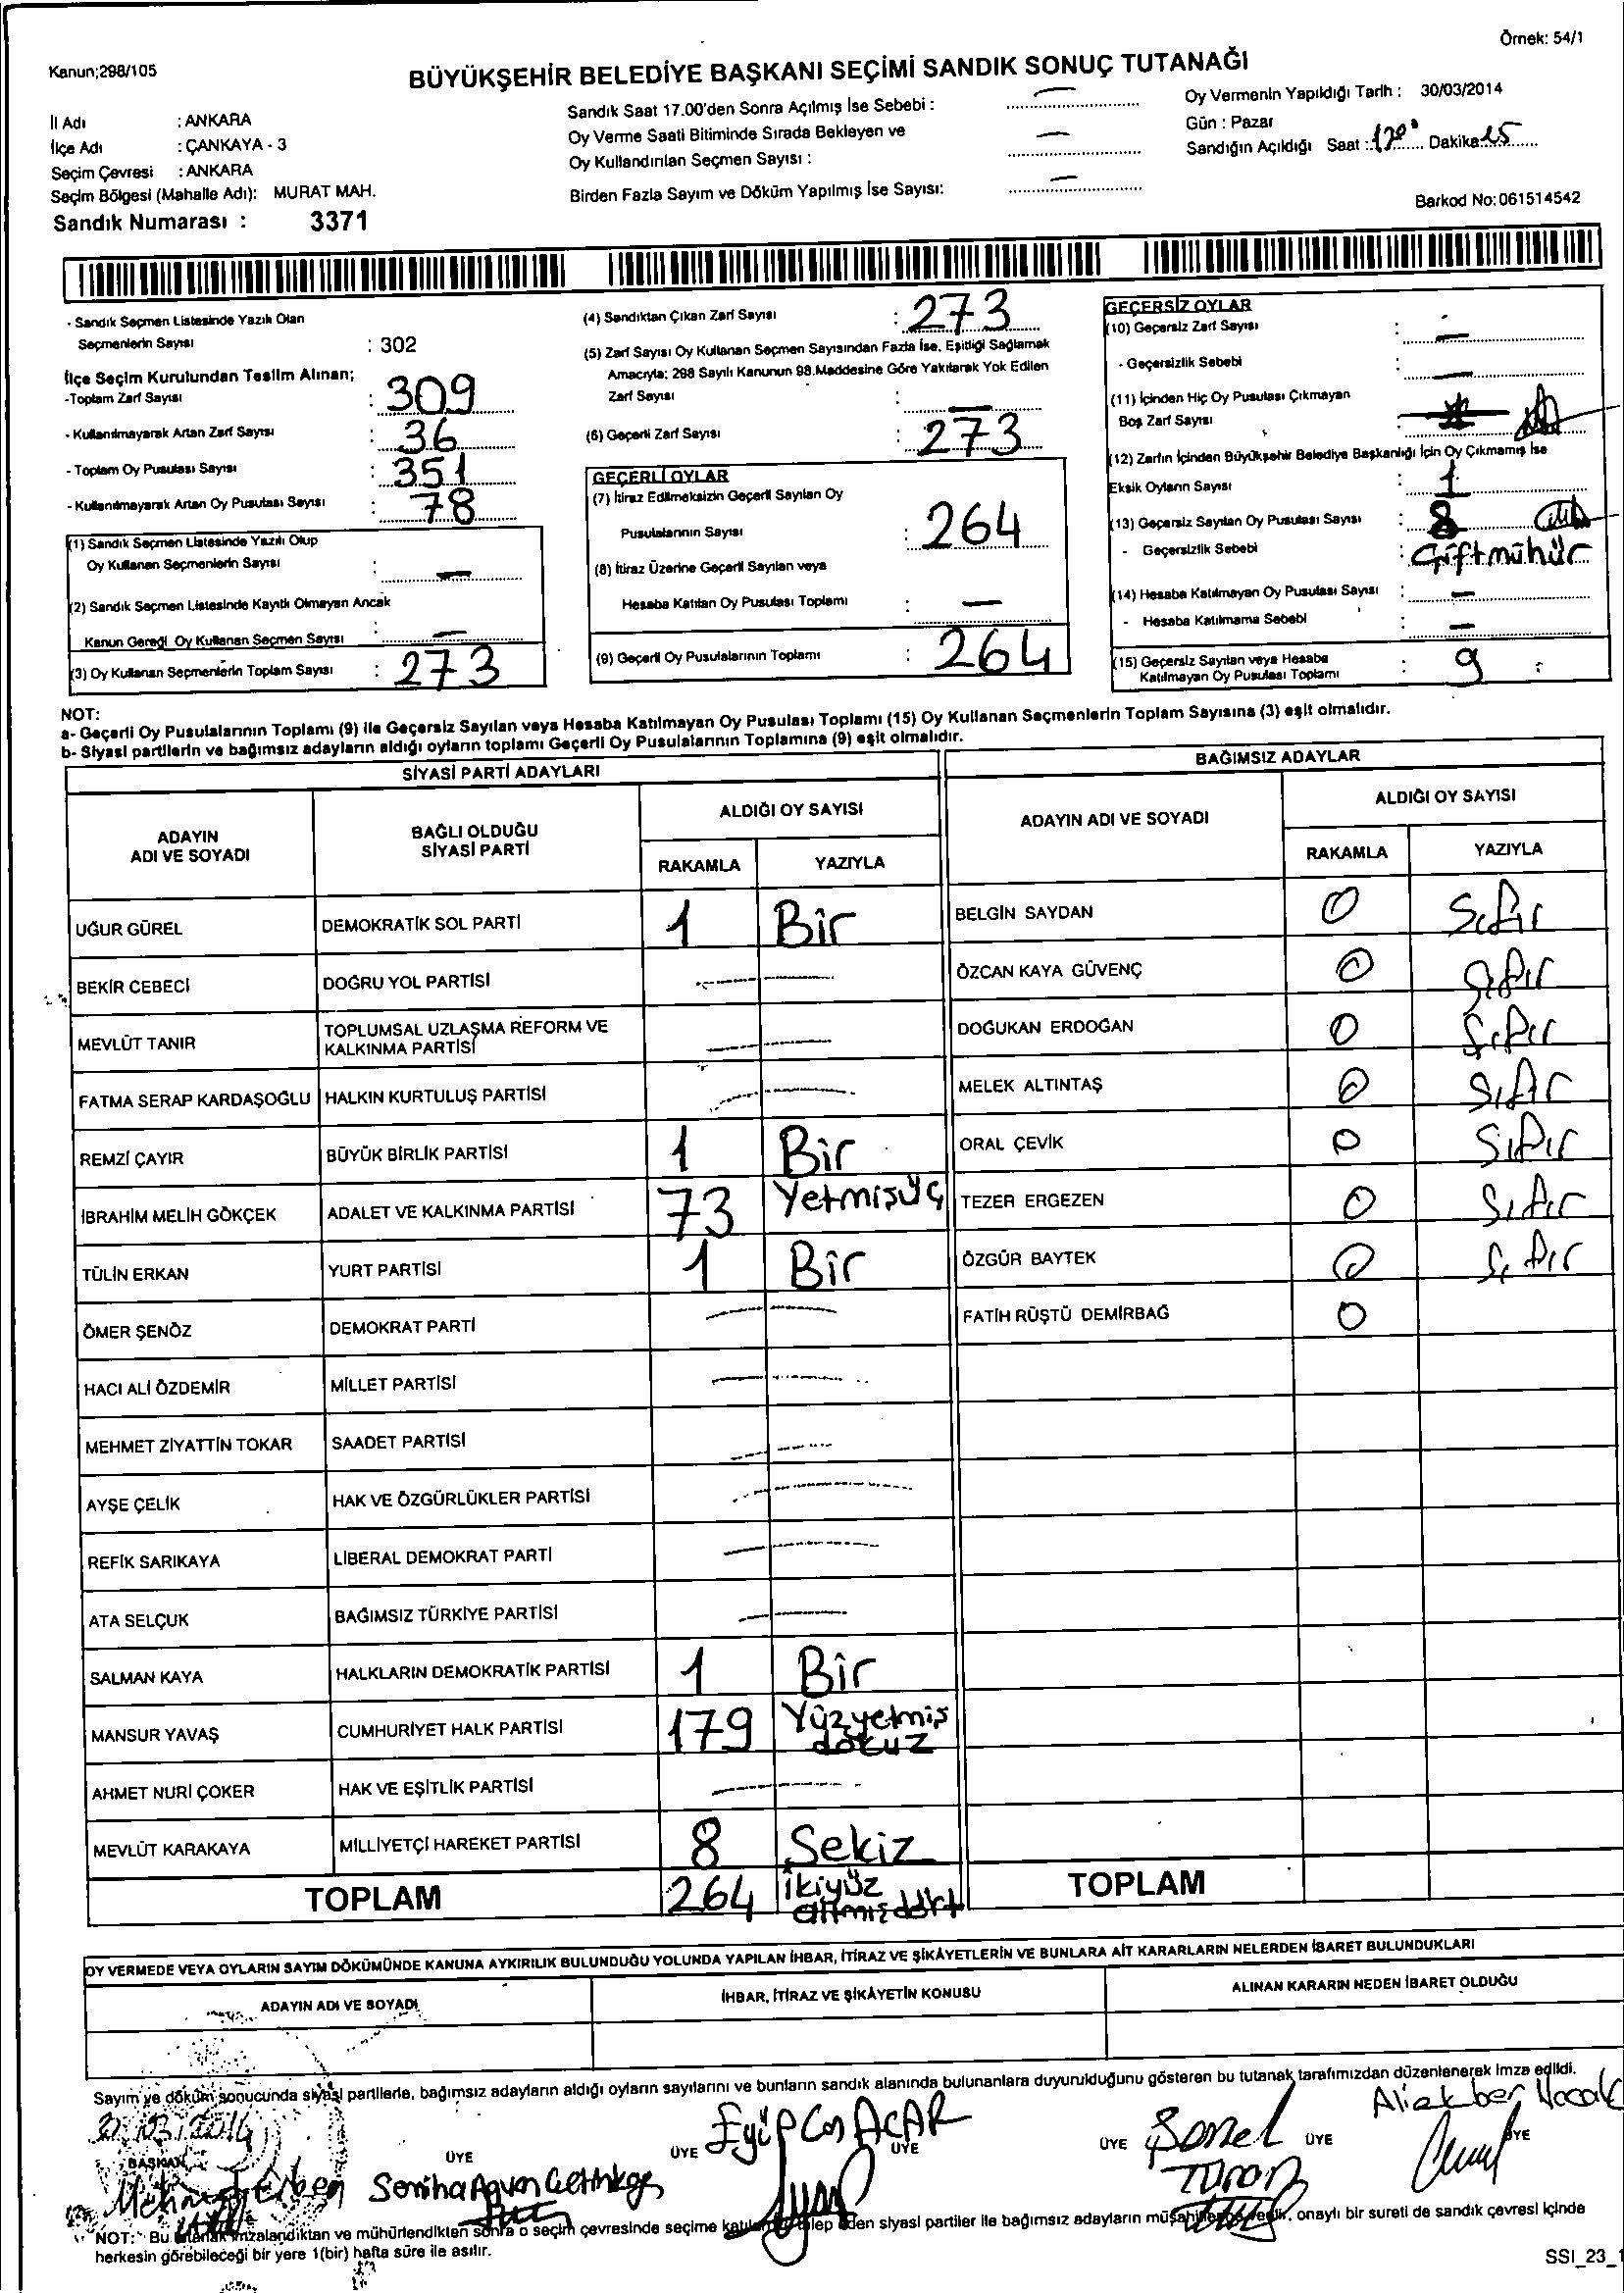 Örnek: 54/1
Kanun;298/105
BÜYÜKŞEHİR BELEDİYE BAŞKANI SEÇİMİ SANDIK SONUÇ TUTANAĞI
İl Adı : ANKARA
İlçe Adı : ÇANKAYA - 3
Seçim Çevresi : ANKARA
Seçim Bölgesi (Mahalle Adı): MURAT MAH.
Sandık Numarası : 3371
Sandık Saat 17.00'den Sonra Açılmış İse Sebebi : —
Oy Verme Saati Bitiminde Sırada Bekleyen ve
Oy Kullandırılan Seçmen Sayısı : —
Birden Fazla Sayım ve Döküm Yapılmış İse Sayısı: —
Oy Vermenin Yapıldığı Tarih : 30/03/2014
Gün : Pazar
Sandığın Açıldığı Saat : Dakika
Barkod No: 061514542
- Sandık Seçmen Listesinde Yazılı Olan
Seçmenlerin Sayısı : 302
İlçe Seçim Kurulundan Teslim Alınan;
-Toplam Zarf Sayısı : 309
- Kullanılmayarak Artan Zarf Sayısı : 36
- Toplam Oy Pusulası Sayısı : 351
- Kullanılmayarak Artan Oy Pusulası Sayısı : 78
(1) Sandık Seçmen Listesinde Yazılı Olup
Oy Kullanan Seçmenlerin Sayısı : —
(2) Sandık Seçmen Listesinde Kayıtlı Olmayan Ancak
Kanun Gereği Oy Kullanan Seçmen Sayısı : —
(3) Oy Kullanan Seçmenlerin Toplam Sayısı : 273
(4) Sandıktan Çıkan Zarf Sayısı : 273
(5) Zarf Sayısı Oy Kullanan Seçmen Sayısından Fazla İse, Eşitliği Sağlamak
Amacıyla; 298 Sayılı Kanunun 98.Maddesine Göre Yakılarak Yok Edilen
Zarf Sayısı : —
(6) Geçerli Zarf Sayısı : 273
GEÇERLİ OYLAR
(7) İtiraz Edilmeksizin Geçerli Sayılan Oy
Pusulalarının Sayısı : 264
(8) İtiraz Üzerine Geçerli Sayılan veya
Hesaba Katılan Oy Pusulası Toplamı : —
(9) Geçerli Oy Pusulalarının Toplamı : 264
GEÇERSİZ OYLAR
(10) Geçersiz Zarf Sayısı : —
- Geçersizlik Sebebi : —
(11) İçinden Hiç Oy Pusulası Çıkmayan
Boş Zarf Sayısı :
(12) Zarfın İçinden Büyükşehir Belediye Başkanlığı İçin Oy Çıkmamış İse
Eksik Oyların Sayısı : 1
(13) Geçersiz Sayılan Oy Pusulası Sayısı : 8
- Geçersizlik Sebebi : Çift mühür
(14) Hesaba Katılmayan Oy Pusulası Sayısı : —
- Hesaba Katılmama Sebebi : —
(15) Geçersiz Sayılan veya Hesaba
Katılmayan Oy Pusulası Toplamı : 9
NOT:
a- Geçerli Oy Pusulalarının Toplamı (9) ile Geçersiz Sayılan veya Hesaba Katılmayan Oy Pusulası Toplamı (15) Oy Kullanan Seçmenlerin Toplam Sayısına (3) eşit olmalıdır.
b- Siyasi partilerin ve bağımsız adayların aldığı oyların toplamı Geçerli Oy Pusulalarının Toplamına (9) eşit olmalıdır.
SİYASİ PARTİ ADAYLARI
ADAYIN
ADI VE SOYADI
BAĞLI OLDUĞU
SİYASİ PARTİ
ALDIĞI OY SAYISI
RAKAMLA YAZIYLA
UĞUR GÜREL DEMOKRATİK SOL PARTİ 1 Bir
BEKİR CEBECİ DOĞRU YOL PARTİSİ —
MEVLÜT TANIR TOPLUMSAL UZLAŞMA REFORM VE
KALKINMA PARTİSİ —
FATMA SERAP KARDAŞOĞLU HALKIN KURTULUŞ PARTİSİ —
REMZİ ÇAYIR BÜYÜK BİRLİK PARTİSİ 1 Bir
İBRAHİM MELİH GÖKÇEK ADALET VE KALKINMA PARTİSİ 73 Yetmişüç
TÜLİN ERKAN YURT PARTİSİ 1 Bir
ÖMER ŞENÖZ DEMOKRAT PARTİ —
HACI ALİ ÖZDEMİR MİLLET PARTİSİ —
MEHMET ZİYATTİN TOKAR SAADET PARTİSİ —
AYŞE ÇELİK HAK VE ÖZGÜRLÜKLER PARTİSİ —
REFİK SARIKAYA LİBERAL DEMOKRAT PARTİ —
ATA SELÇUK BAĞIMSIZ TÜRKİYE PARTİSİ —
SALMAN KAYA HALKLARIN DEMOKRATİK PARTİSİ 1 Bir
MANSUR YAVAŞ CUMHURİYET HALK PARTİSİ 179 Yüzyetmiş
dokuz
AHMET NURİ ÇOKER HAK VE EŞİTLİK PARTİSİ —
MEVLÜT KARAKAYA MİLLİYETÇİ HAREKET PARTİSİ 8 Sekiz
TOPLAM 264 İkiyüz
altmışdört
BAĞIMSIZ ADAYLAR
ADAYIN ADI VE SOYADI
ALDIĞI OY SAYISI
RAKAMLA YAZIYLA
BELGİN SAYDAN 0 Sıfır
ÖZCAN KAYA GÜVENÇ 0 Sıfır
DOĞUKAN ERDOĞAN 0 Sıfır
MELEK ALTINTAŞ 0 Sıfır
ORAL ÇEVİK 0 Sıfır
TEZER ERGEZEN 0 Sıfır
ÖZGÜR BAYTEK 0 Sıfır
FATİH RÜŞTÜ DEMİRBAĞ 0
TOPLAM
OY VERMEDE VEYA OYLARIN SAYIM DÖKÜMÜNDE KANUNA AYKIRILIK BULUNDUĞU YOLUNDA YAPILAN İHBAR, İTİRAZ VE ŞİKÂYETLERİN VE BUNLARA AİT KARARLARIN NELERDEN İBARET BULUNDUKLARI
ADAYIN ADI VE SOYADI İHBAR, İTİRAZ VE ŞİKÂYETİN KONUSU ALINAN KARARIN NEDEN İBARET OLDUĞU
Sayım ve döküm sonucunda siyasi partilerle, bağımsız adayların aldığı oyların sayılarını ve bunların sandık alanında bulunanlara duyurulduğunu gösteren bu tutanak tarafımızdan düzenlenerek imza edildi.
BAŞKAN ÜYE ÜYE ÜYE ÜYE ÜYE ÜYE
Eyüp Can ACAR
Şenel
Turan
Aliekber
Mehmet Semiha
NOT: Bu tutanak imzalandıktan ve mühürlendikten sonra o seçim çevresinde seçime katılan ve talep eden siyasi partiler ile bağımsız adayların müşahitlerine verilir, onaylı bir sureti de sandık çevresi içinde
herkesin görebileceği bir yere 1(bir) hafta süre ile asılır.
SSI_23_1